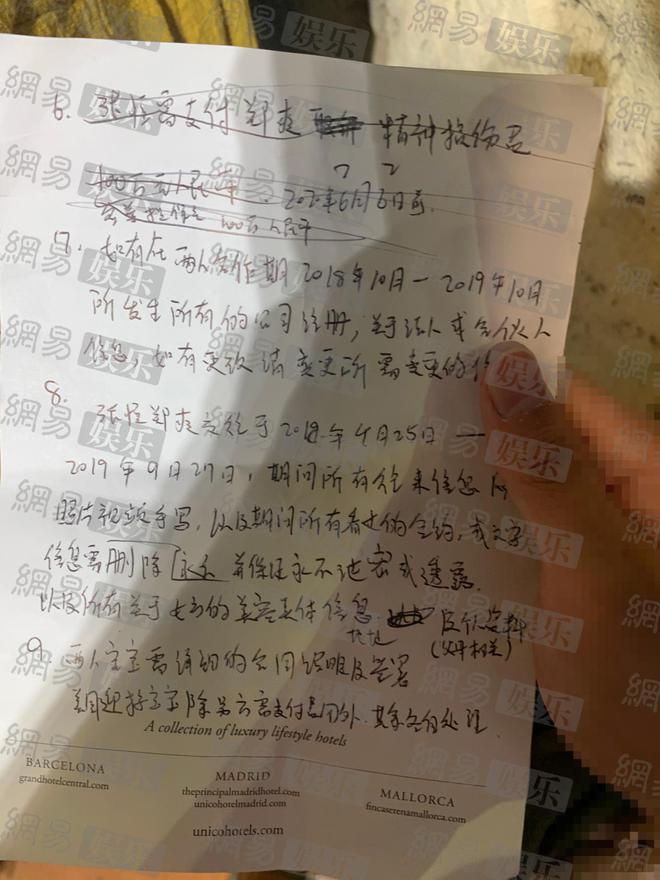 6. 张恒需支付郑爽 精神损伤思
100万元人民币. 2020年6月6日前.
100万人民币
7. 如有在两人合作期 2018年10月—2019年10月
所发生所有的公司注册, 关于法人或合伙人
信息, 如有变改 请变更所需变更的
8.
张恒郑爽交往于2018年4月25日—
2019年9月27日, 期间所有往来信息及
照片视频手写, 以及期间所有着女的合约, 或文字
信息需删除 永久 并保证永不泄密或透露.
以及所有关于女方的美容身体信息. 地址 个人资料
(父母相关)
9. 两人 需 的合同 及签署
除 需支付 外. 其余 处理.
A collection of luxury lifestyle hotels
BARCELONA
grandhotelcentral.com
MADRID
theprincipalmadridhotel.com
unicohotelmadrid.com
MALLORCA
fincaserenamallorca.com
unicohotels.com
網易娱乐